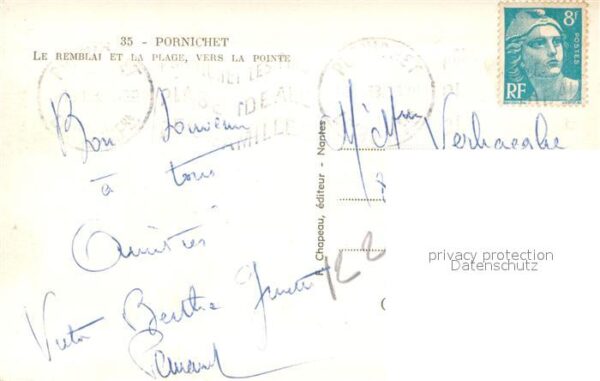 35 - PORNICHET
LE REMBLAI ET LA PLAGE, VERS LA POINTE
8F
POSTES
RF
Bon Souvenir
à tous
Amitiés
Victor Berthe
M' Mme Verhaeghe
Chapeau, éditeur - Nantes
privacy protection
Datenschutz